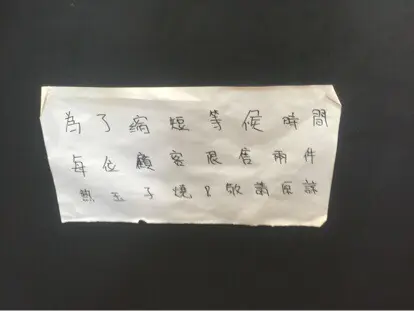 為了縮短等候時間
每位顧客限售兩件
熱玉子燒&敬請原諒